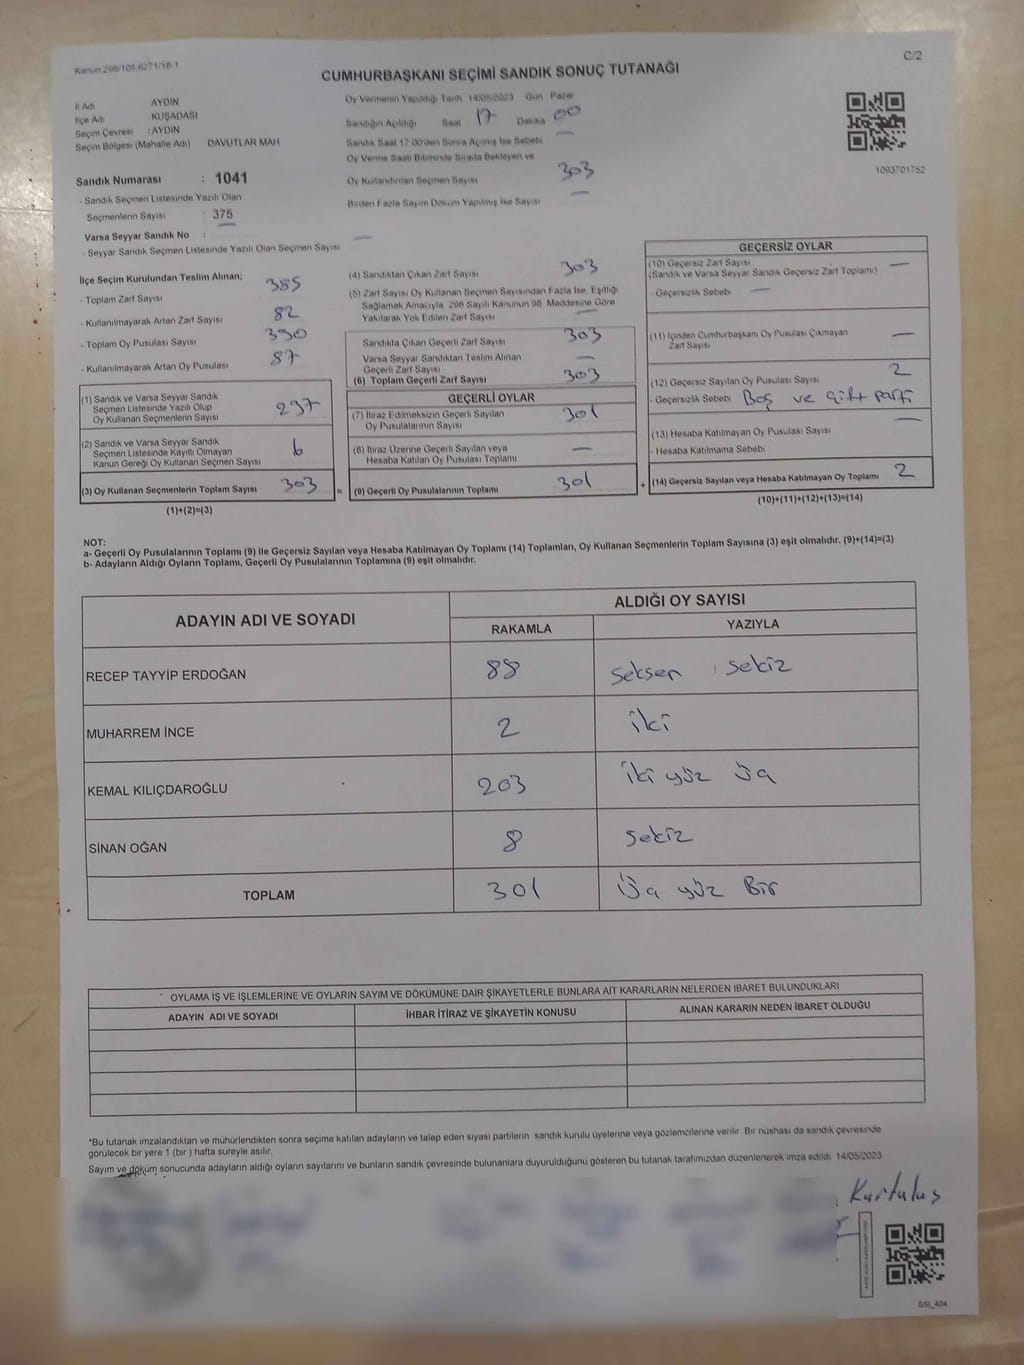 Kanun 298/105,6271/18-1
C/2
CUMHURBAŞKANI SEÇİMİ SANDIK SONUÇ TUTANAĞI
İl Adı AYDIN
İlçe Adı KUŞADASI
Seçim Çevresi : AYDIN
Seçim Bölgesi (Mahalle Adı) DAVUTLAR MAH
Sandık Numarası : 1041
- Sandık Seçmen Listesinde Yazılı Olan
Seçmenlerin Sayısı : 375
Varsa Seyyar Sandık No :
- Seyyar Sandık Seçmen Listesinde Yazılı Olan Seçmen Sayısı
Oy Vermenin Yapıldığı Tarih 14/05/2023 Gün Pazar
Sandığın Açıldığı Saat 17 Dakika 00
Sandık Saat 17.00'den Sonra Açılmış İse Sebebi
Oy Verme Saati Bitiminde Sırada Bekleyen ve
Oy Kullandırılan Seçmen Sayısı 303
Birden Fazla Sayım Döküm Yapılmış İse Sayısı
1093701752
İlçe Seçim Kurulundan Teslim Alınan;
- Toplam Zarf Sayısı 385
- Kullanılmayarak Artan Zarf Sayısı 82
- Toplam Oy Pusulası Sayısı 390
- Kullanılmayarak Artan Oy Pusulası 87
(1) Sandık ve Varsa Seyyar Sandık
Seçmen Listesinde Yazılı Olup
Oy Kullanan Seçmenlerin Sayısı 297
(2) Sandık ve Varsa Seyyar Sandık
Seçmen Listesinde Kayıtlı Olmayan
Kanun Gereği Oy Kullanan Seçmen Sayısı 6
(3) Oy Kullanan Seçmenlerin Toplam Sayısı 303
(1)+(2)=(3)
(4) Sandıktan Çıkan Zarf Sayısı 303
(5) Zarf Sayısı Oy Kullanan Seçmen Sayısından Fazla İse, Eşitliği
Sağlamak Amacıyla, 298 Sayılı Kanunun 98. Maddesine Göre
Yakılarak Yok Edilen Zarf Sayısı
Sandıkta Çıkan Geçerli Zarf Sayısı 303
Varsa Seyyar Sandıktan Teslim Alınan
Geçerli Zarf Sayısı
(6) Toplam Geçerli Zarf Sayısı 303
GEÇERLİ OYLAR
(7) İtiraz Edilmeksizin Geçerli Sayılan
Oy Pusulalarının Sayısı 301
(8) İtiraz Üzerine Geçerli Sayılan veya
Hesaba Katılan Oy Pusulası Toplamı
= (9) Geçerli Oy Pusulalarının Toplamı 301 +
GEÇERSİZ OYLAR
(10) Geçersiz Zarf Sayısı
(Sandık ve Varsa Seyyar Sandık Geçersiz Zarf Toplamı)
- Geçersizlik Sebebi
(11) İçinden Cumhurbaşkanı Oy Pusulası Çıkmayan
Zarf Sayısı
(12) Geçersiz Sayılan Oy Pusulası Sayısı 2
- Geçersizlik Sebebi Boş ve çift parti
(13) Hesaba Katılmayan Oy Pusulası Sayısı
- Hesaba Katılmama Sebebi
(14) Geçersiz Sayılan veya Hesaba Katılmayan Oy Toplamı 2
(10)+(11)+(12)+(13)=(14)
NOT:
a- Geçerli Oy Pusulalarının Toplamı (9) ile Geçersiz Sayılan veya Hesaba Katılmayan Oy Toplamı (14) Toplamları, Oy Kullanan Seçmenlerin Toplam Sayısına (3) eşit olmalıdır. (9)+(14)=(3)
b- Adayların Aldığı Oyların Toplamı, Geçerli Oy Pusulalarının Toplamına (9) eşit olmalıdır.
ADAYIN ADI VE SOYADI
ALDIĞI OY SAYISI
RAKAMLA YAZIYLA
RECEP TAYYİP ERDOĞAN 88 Seksen sekiz
MUHARREM İNCE 2 iki
KEMAL KILIÇDAROĞLU 203 iki yüz üç
SİNAN OĞAN 8 Sekiz
TOPLAM 301 Üç yüz Bir
OYLAMA İŞ VE İŞLEMLERİNE VE OYLARIN SAYIM VE DÖKÜMÜNE DAİR ŞİKAYETLERLE BUNLARA AİT KARARLARIN NELERDEN İBARET BULUNDUKLARI
ADAYIN ADI VE SOYADI İHBAR İTİRAZ VE ŞİKAYETİN KONUSU ALINAN KARARIN NEDEN İBARET OLDUĞU
*Bu tutanak imzalandıktan ve mühürlendikten sonra seçime katılan adayların ve talep eden siyasi partilerin sandık kurulu üyelerine veya gözlemcilerine verilir. Bir nüshası da sandık çevresinde
görülecek bir yere 1 (bir) hafta süreyle asılır.
Sayım ve döküm sonucunda adayların aldığı oyların sayılarını ve bunların sandık çevresinde bulunanlara duyurulduğunu gösteren bu tutanak tarafımızdan düzenlenerek imza edildi. 14/05/2023
Kurtuluş
SSI_404